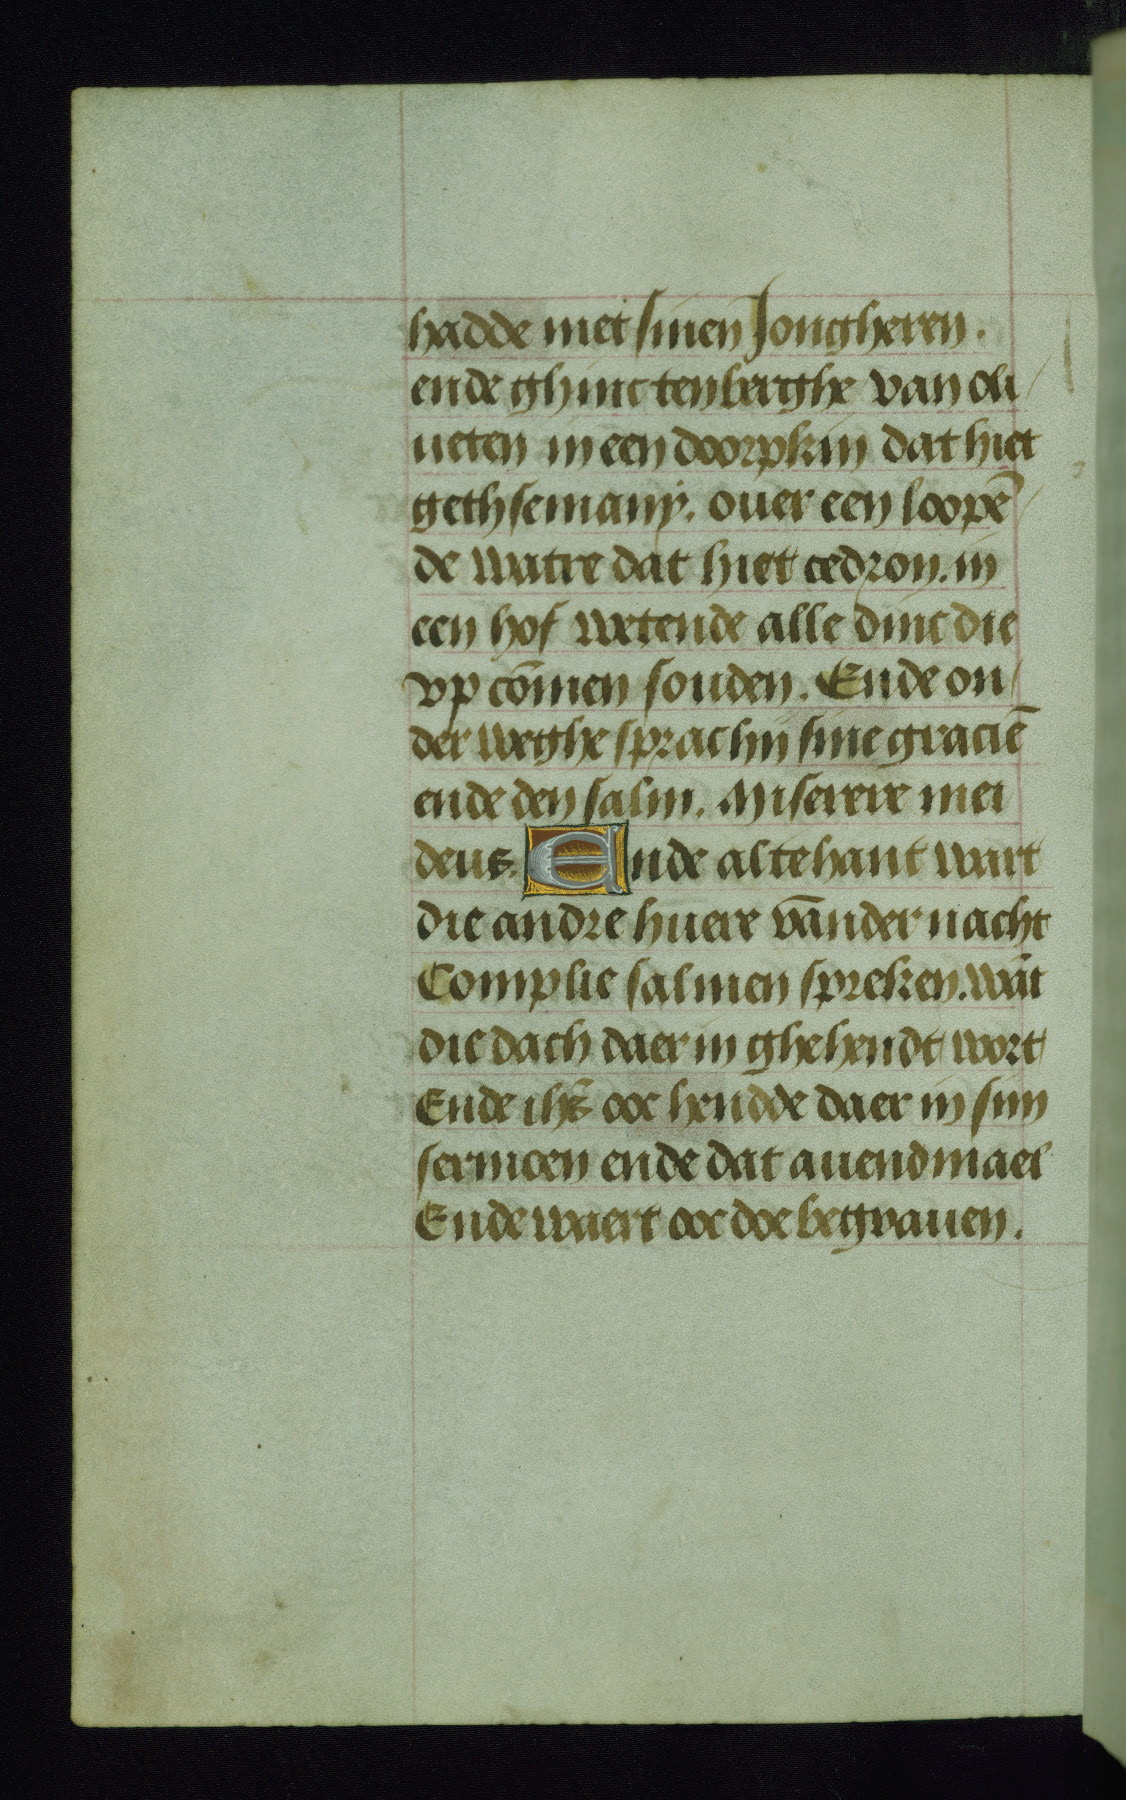 hadde met sinen Jongheren.
ende ghinc ten berghe van oli/
ueten in een doorpkin dat hiet
gethsemany. ouer een loopē/
de watre dat hiet cedron. in
een hof wetende alle dinc die
vp cōmen souden. Ende on/
der weghe sprac hij sine graciē
ende den salm. Miserere mei
deus. Ende altehant wart
die andre huere vander nacht
Complie salmen spreken. want
die dach daer in gheheyndt wort
Ende ihs ooc heyndde daer in sijn
sermoen ende dat auendmael
Ende waert ooc doe begrauen.